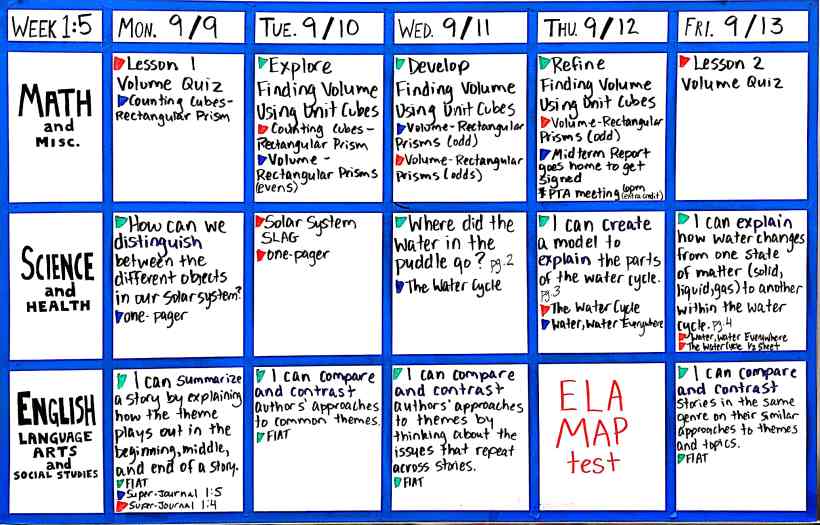 WEEK 1:5
MON. 9/9
TUE. 9/10
WED. 9/11
THU. 9/12
FRI. 9/13
MATH
and
MISC.
Lesson 1
Volume Quiz
Counting Cubes-
Rectangular Prism
Explore
Finding Volume
Using Unit Cubes
Counting Cubes-
Rectangular Prism
Volume -
Rectangular Prisms
(evens)
Develop
Finding Volume
Using Unit Cubes
Volume-Rectangular
Prisms (odd)
Volume-Rectangular
Prisms (odds)
Refine
Finding Volume
Using Unit Cubes
Volume-Rectangular
Prisms (odd)
Midterm Report
goes home to get
signed
* PTA meeting 6pm
(extra credit)
Lesson 2
Volume Quiz
SCIENCE
and
HEALTH
How can we
distinguish
between the
different objects
in our solar system?
one-pager
Solar System
SLAG
one-pager
Where did the
water in the
puddle go? pg.2
The Water Cycle
I can create
a model to
explain the parts
of the water cycle.
pg.3
The Water Cycle
Water, Water Everywhere
I can explain
how water changes
from one state
of matter (solid,
liquid, gas) to another
within the water
cycle. pg.4
Water, Water Everywhere
The Water Cycle 1/2 Sheet
ENGLISH
LANGUAGE
ARTS
and
SOCIAL STUDIES
I can summarize
a story by explaining
how the theme
plays out in the
beginning, middle,
and end of a story.
FIAT
Super-Journal 1:5
Super-Journal 1:4
I can compare
and contrast
authors' approaches
to common themes.
FIAT
I can compare
and contrast
authors' approaches
to themes by
thinking about the
issues that repeat
across stories.
FIAT
ELA
MAP
test
I can compare
and contrast
stories in the same
genre on their similar
approaches to themes
and topics.
FIAT